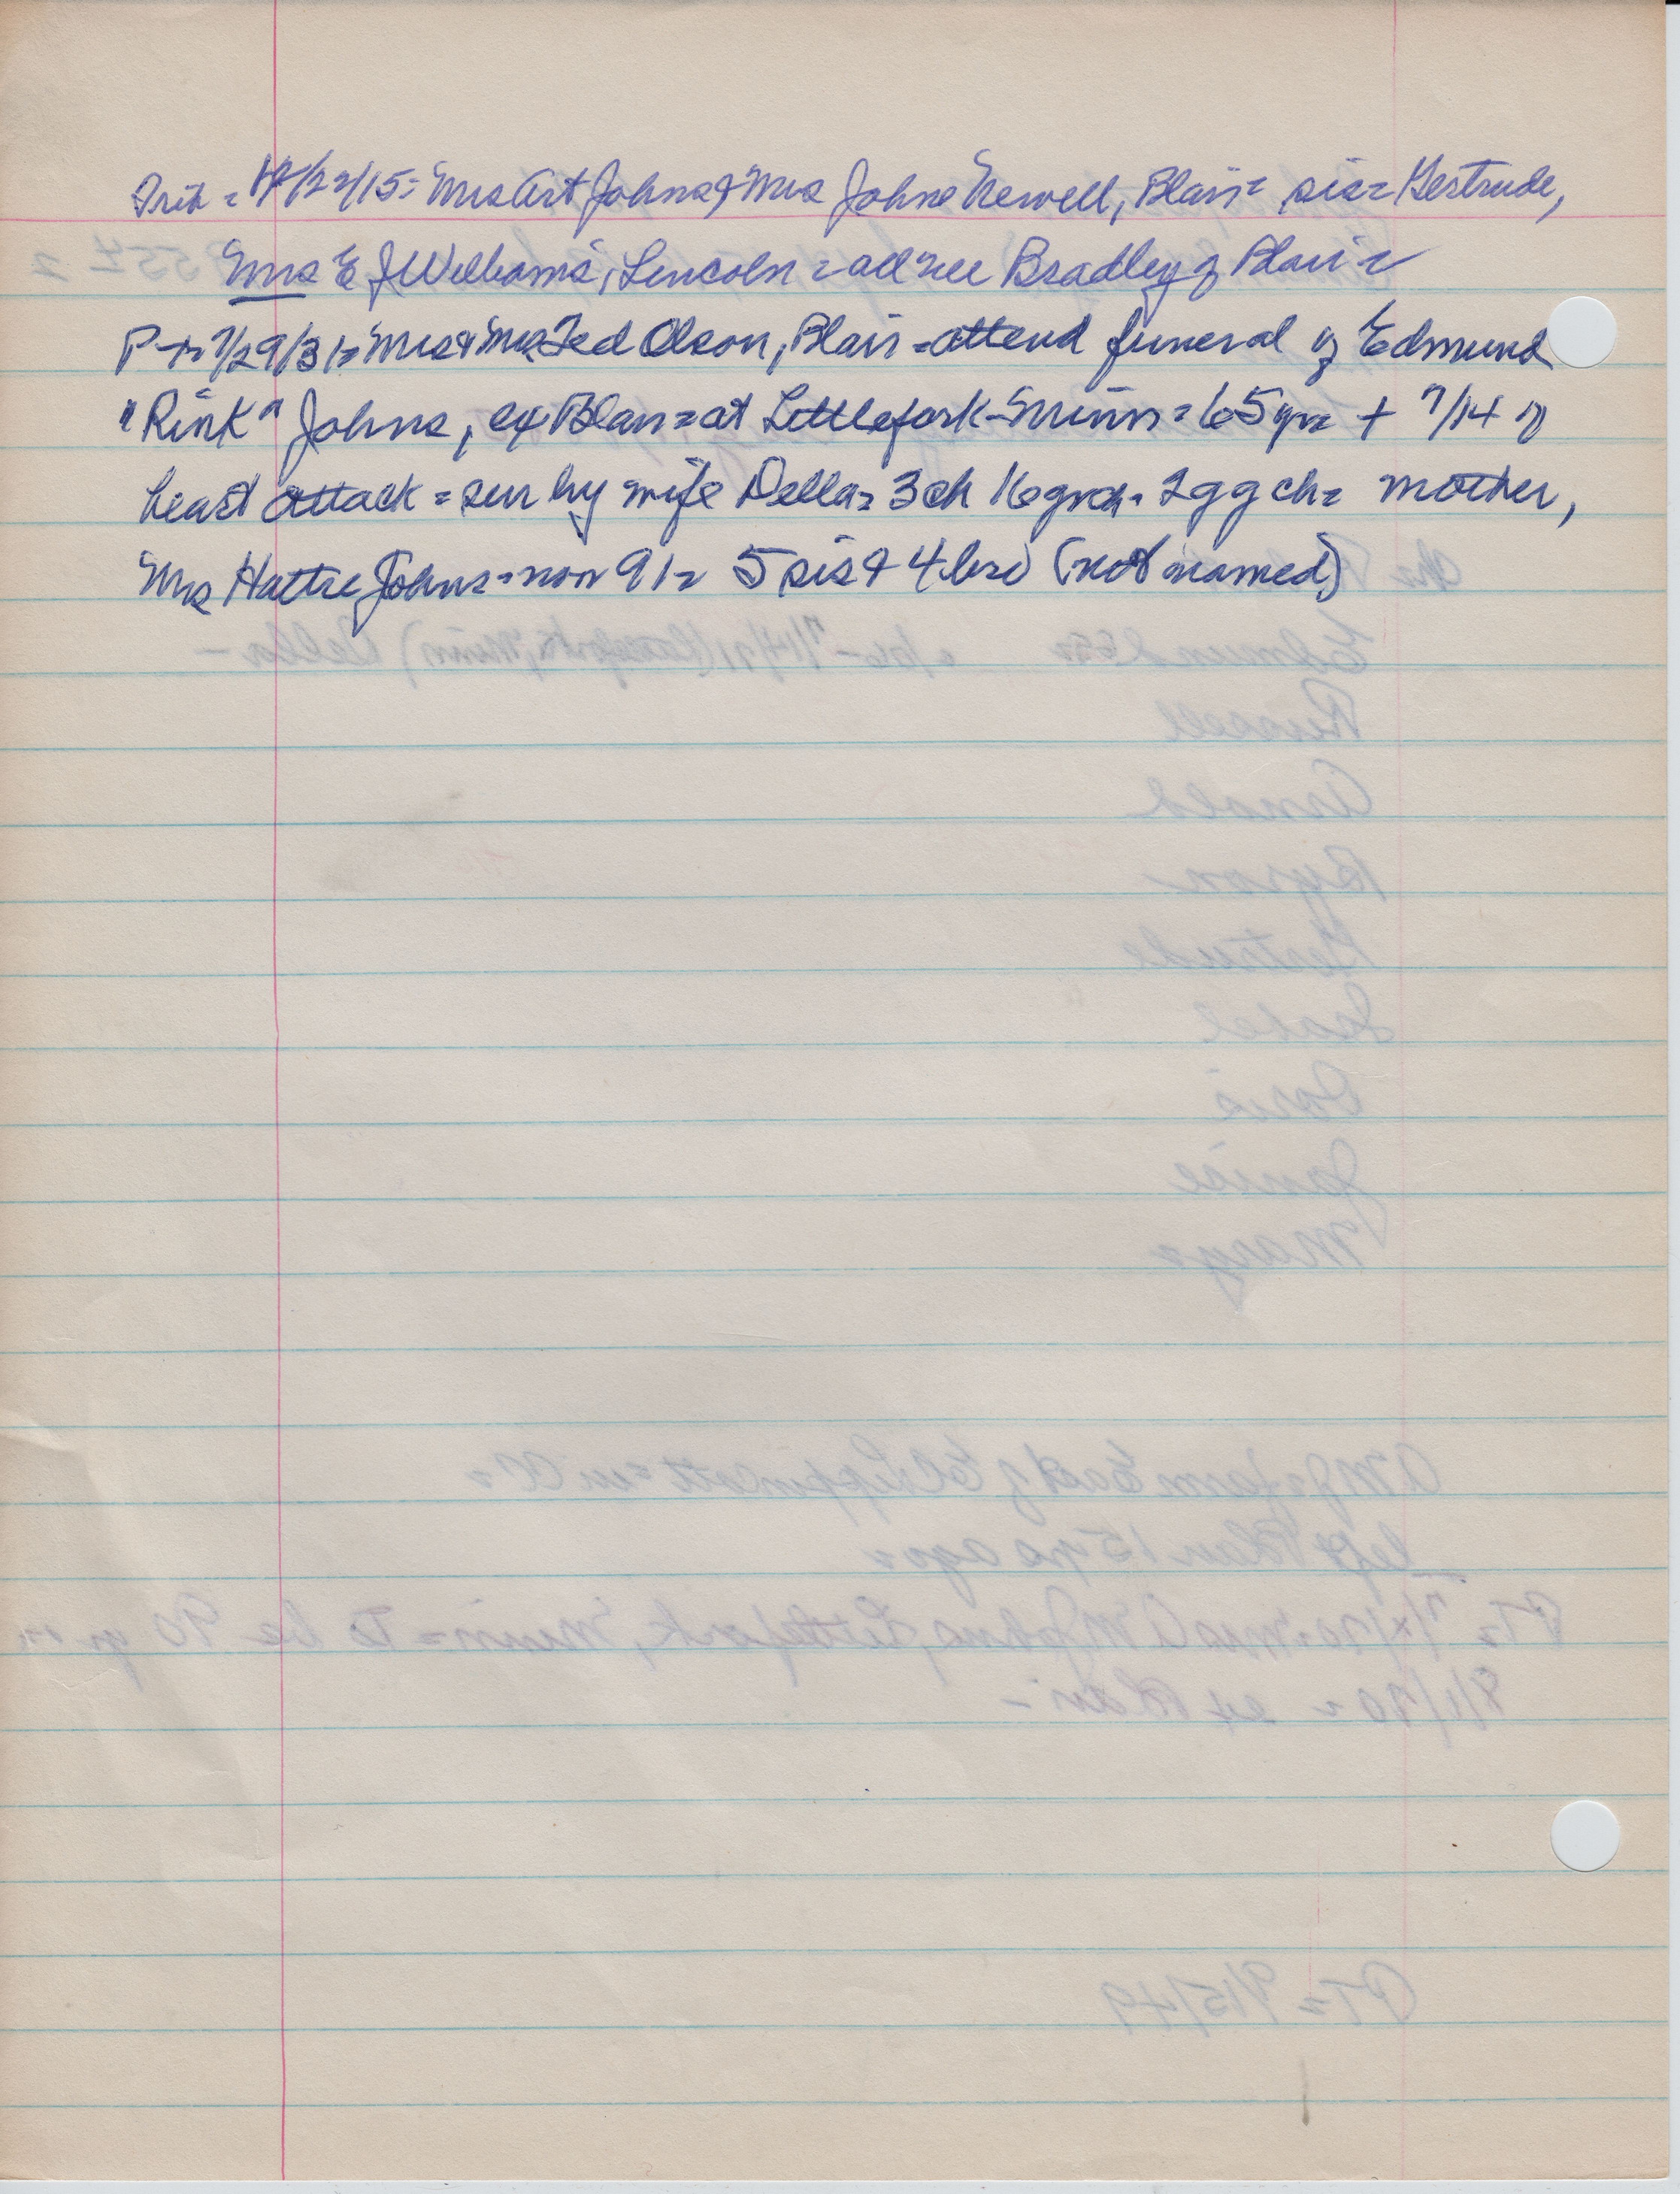 Trib = 12/22/15 = Mrs Art Johns & Mrs John Newell, Blair = sis = Gertrude,
Mrs E J Williams, Lincoln = all nee Bradley of Blair =
P-T = 7/29/31 = Mrs & Mrs Ted Olson, Blair = attend funeral of Edmund
"Rink" Johns, ex Blair = at Littlefork - Minn = 65 yrs + 7/14 of
heart attack = sur by wife Della = 3 ch 16 grch = 2 g g ch = mother,
Mrs Hattie Johns = now 91 = 5 sis & 4 bro (not named)